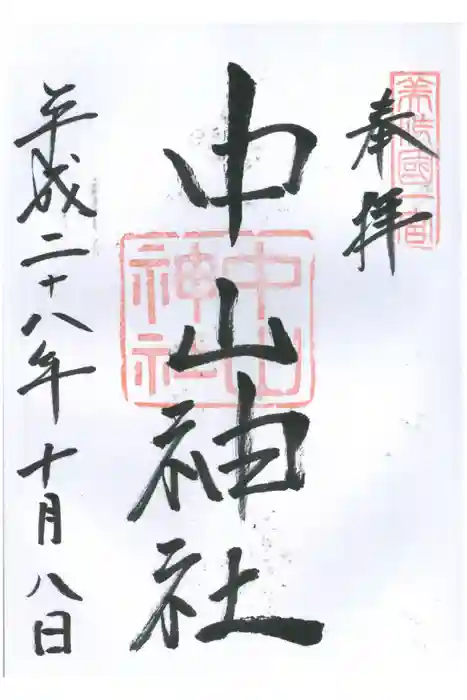 奉拝
美作國一宮
中山神社
中山神社
平成二十八年十月八日